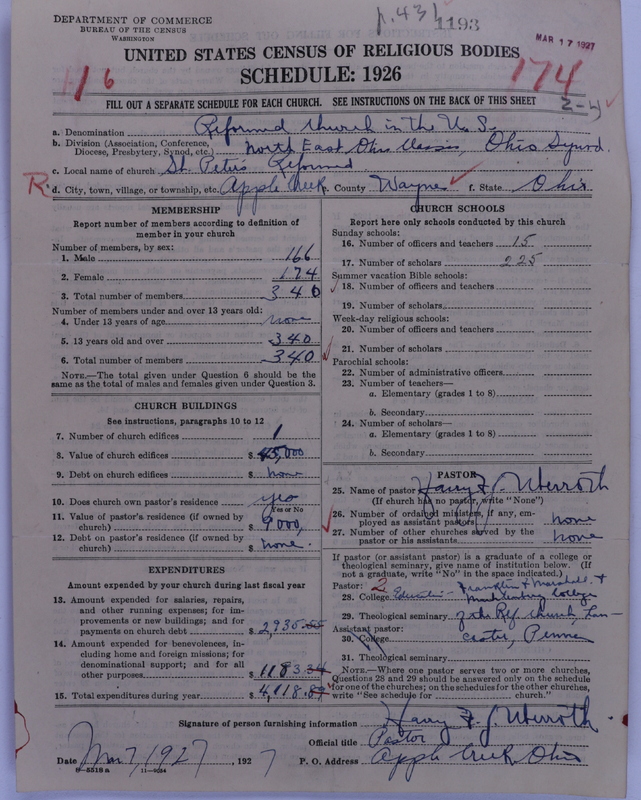 DEPARTMENT OF COMMERCE
BUREAU OF THE CENSUS
WASHINGTON
p. 431
1193
MAR 17 1927
UNITED STATES CENSUS OF RELIGIOUS BODIES
SCHEDULE: 1926
116
174
FILL OUT A SEPARATE SCHEDULE FOR EACH CHURCH. SEE INSTRUCTIONS ON THE BACK OF THIS SHEET
2-4
a. Denomination Reformed Church in the U.S.
b. Division (Association, Conference, Diocese, Presbytery, Synod, etc.) North East Ohio Classis, Ohio Synod.
c. Local name of church St. Peter's Reformed
R d. City, town, village, or township, etc. Apple Creek e. County Wayne f. State Ohio
MEMBERSHIP
Report number of members according to definition of
member in your church
Number of members, by sex:
1. Male 166
2. Female 174
3. Total number of members 340
Number of members under and over 13 years old:
4. Under 13 years of age none
5. 13 years old and over 340
6. Total number of members 340
NOTE.—The total given under Question 6 should be
same as the total of males and females given under Question 3.
CHURCH BUILDINGS
See instructions, paragraphs 10 to 12
7. Number of church edifices 1
8. Value of church edifices $ 45,000
9. Debt on church edifices $ none
10. Does church own pastor's residence yes
Yes or No
11. Value of pastor's residence (if owned by
church) $ 9000,
12. Debt on pastor's residence (if owned by
church) $ none.
EXPENDITURES
Amount expended by your church during last fiscal year
13. Amount expended for salaries, repairs,
and other running expenses; for im-
provements or new buildings; and for
payments on church debt $ 2,935.55
14. Amount expended for benevolences, in-
cluding home and foreign missions; for
denominational support; and for all
other purposes $ 1183.34
15. Total expenditures during year $ 4,118.89
CHURCH SCHOOLS
Report here only schools conducted by this church
Sunday schools:
16. Number of officers and teachers 15
17. Number of scholars 225
Summer vacation Bible schools:
18. Number of officers and teachers
19. Number of scholars
Week-day religious schools:
20. Number of officers and teachers
21. Number of scholars
Parochial schools:
22. Number of administrative officers
23. Number of teachers—
a. Elementary (grades 1 to 8)
b. Secondary
24. Number of scholars—
a. Elementary (grades 1 to 8)
b. Secondary
PASTOR
25. Name of pastor Harry F. J. Uberroth
(If church has no pastor, write "None")
26. Number of ordained ministers, if any, em-
ployed as assistant pastors none
27. Number of other churches served by the
pastor or his assistants none
If pastor (or assistant pastor) is a graduate of a college or
theological seminary, give name of institution below. (If
not a graduate, write "No" in the space indicated.)
Pastor: 2 Franklin & Marshall &
28. College Education - Muhlenberg College
29. Theological seminary of the Ref Church, Lan-
Assistant pastor:
30. College caster, Penna
31. Theological seminary
NOTE.—Where one pastor serves two or more churches,
Questions 28 and 29 should be answered only on the schedule
for one of the churches; on the schedules for the other churches,
write "See schedule for church."
Signature of person furnishing information Harry F. J. Uberroth
Official title Pastor
Date Mar 7, 1927, 1927 P. O. Address Apple Creek, Ohio
8—5518 a 11—9024